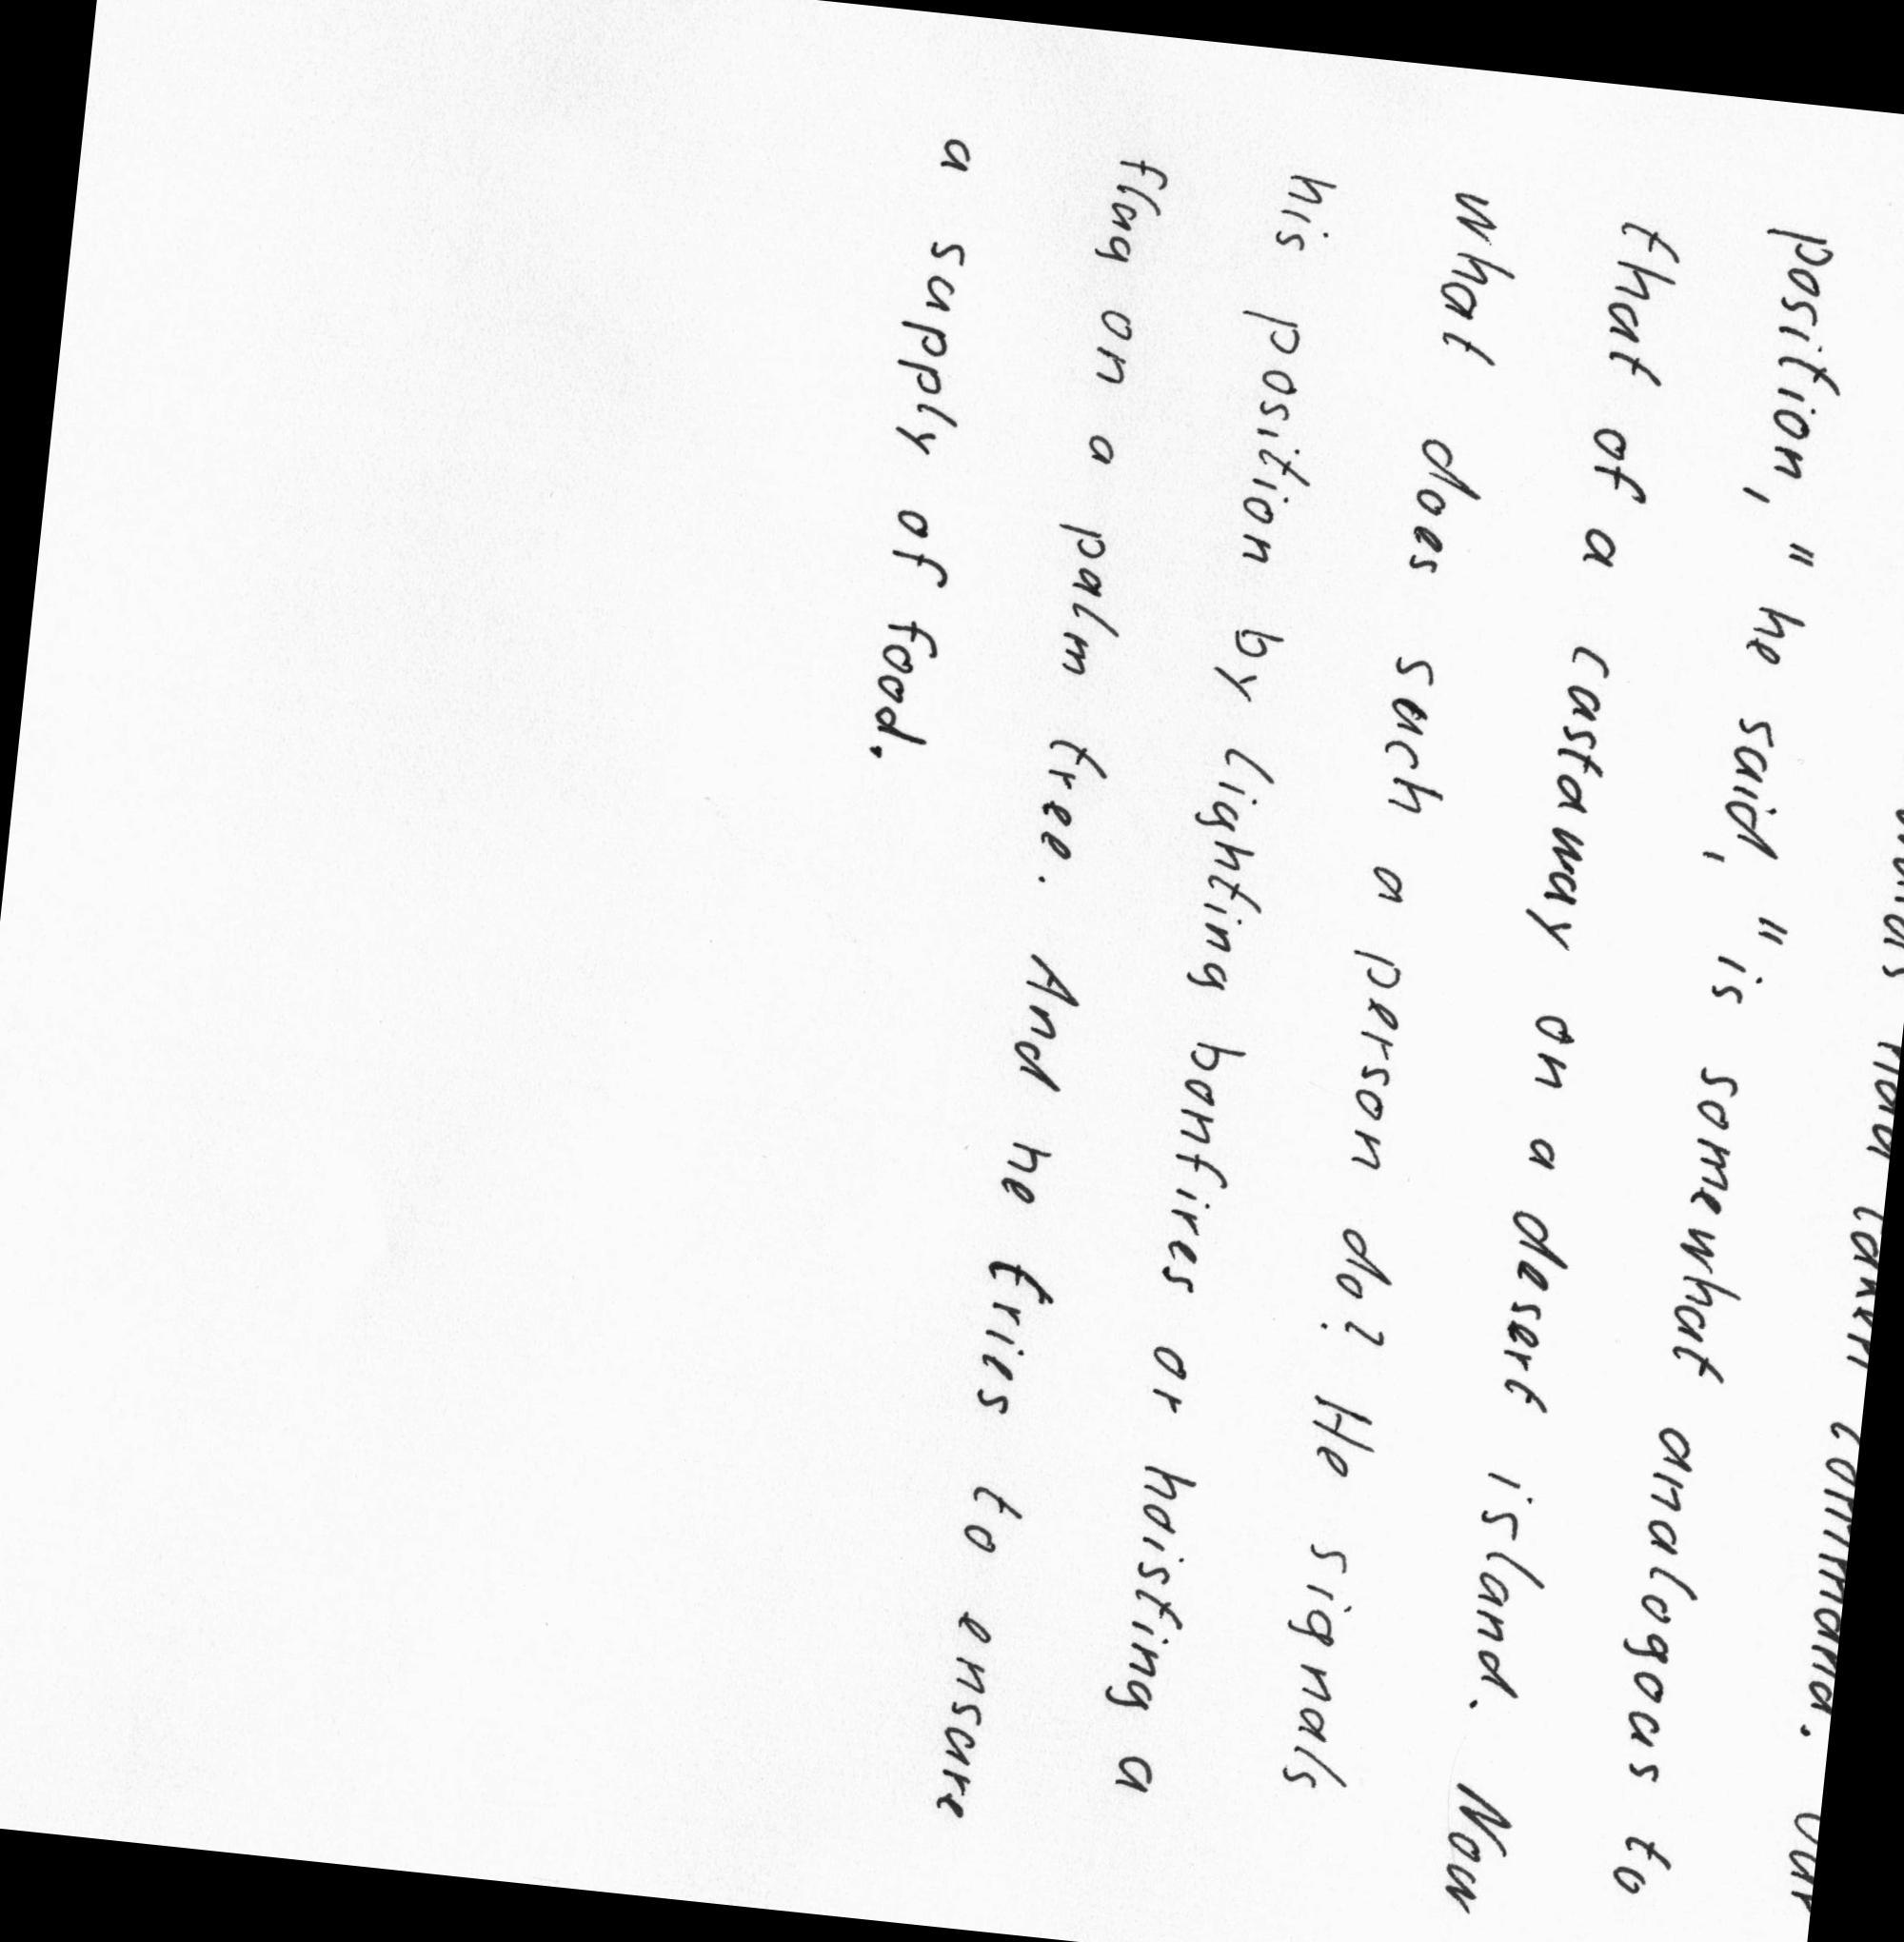 had taken command. Our
position," he said, "is somewhat analogous to
that of a castaway on a desert island. Now
what does such a person do? He signals
his position by lighting bonfires or hoisting a
flag on a palm tree. And he tries to ensure
a supply of food.